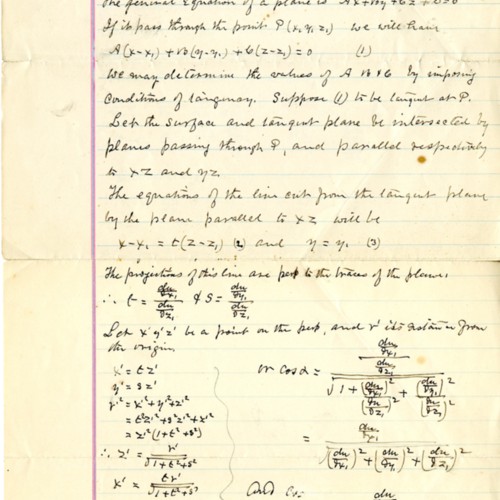 The general Equation of a plane is Ax+By+Cz+D=0
If it pass through the point P(x, y, z,) we will have
A(x-x₁)+B(y-y₁)+C(z-z₁)=0 (1)
We may determine the values of A B & C by imposing
conditions of tangency. Suppose (1) to be tangent at P.
Let the surface and tangent plane be intersected by
planes passing through P, and parallel respectively
to xz and yz.
The equations of the line cut from the tangent plane
by the plane parallel to xz will be
x-x₁ = t(z-z₁) (2) and y=y₁ (3)
The projections of this line are perp to the traces of the plane.
∴ t = (du/dx₁)/(du/dz₁) & s = (du/dy₁)/(du/dz₁)
Let x' y' z' be a point on the perp, and r' its distance from
the origin.
x' = tz'
y' = sz'
r'² = x'²+y'²+z'²
= t²z'²+s²z'²+z'²
= z'²(1+t²+s²)
∴ z' = r'/√(1+t²+s²)
x' = tr'/√(1+t²+s²)
or cos α = ((du/dx₁)/(du/dz₁))/√(1+(du/dx₁)²/(du/dz₁)²+(du/dy₁)²/(du/dz₁)²)
= (du/dx₁)/√((du/dx₁)²+(du/dy₁)²+(du/dz₁)²)
And Cos